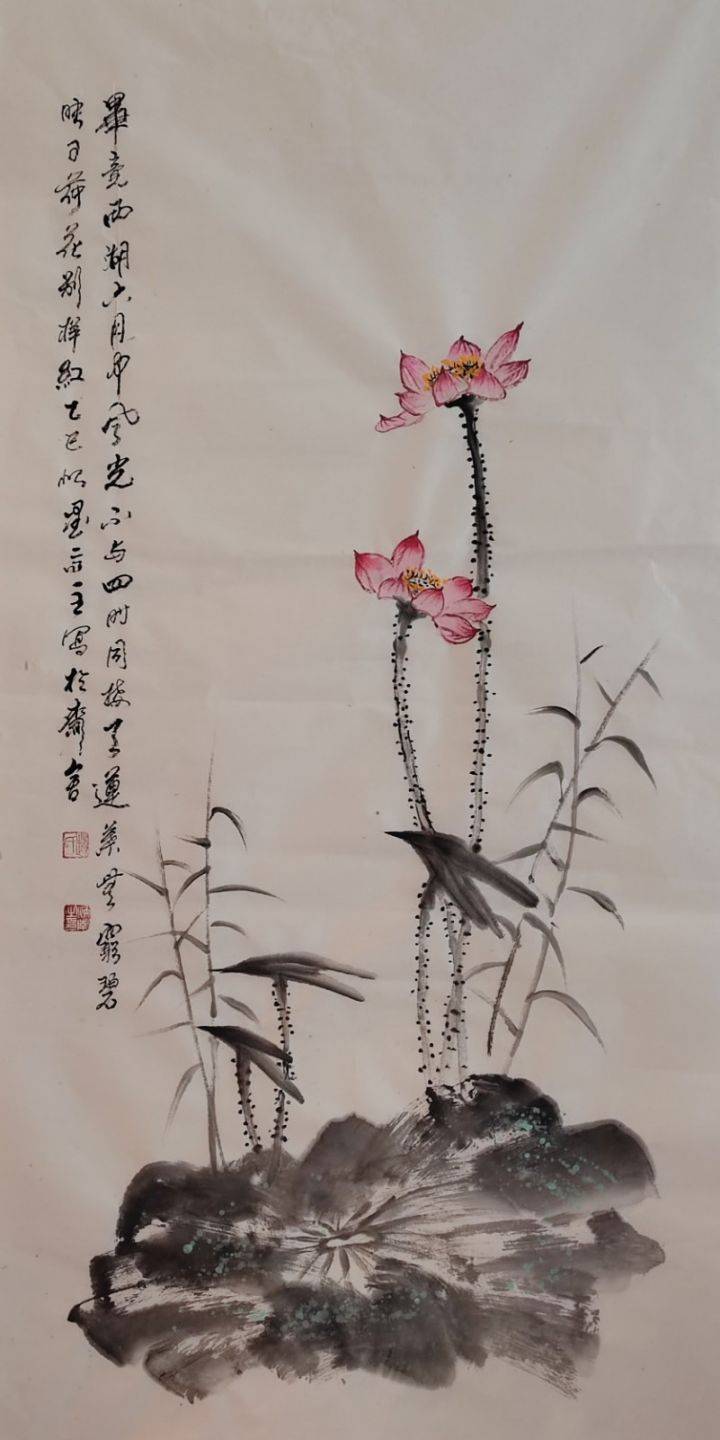 畢竟西湖六月中風光不与四时同接天蓮葉無窮碧
映日荷花别樣紅乙巳墨主寫於齋舍